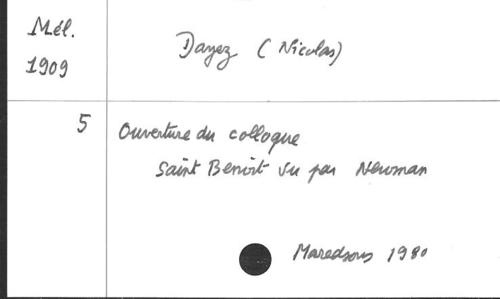 Mél.
1909
Dayez (Nicolas)
5
Ouverture du colloque
Saint Benoît vu par Newman
Maredsous 1980